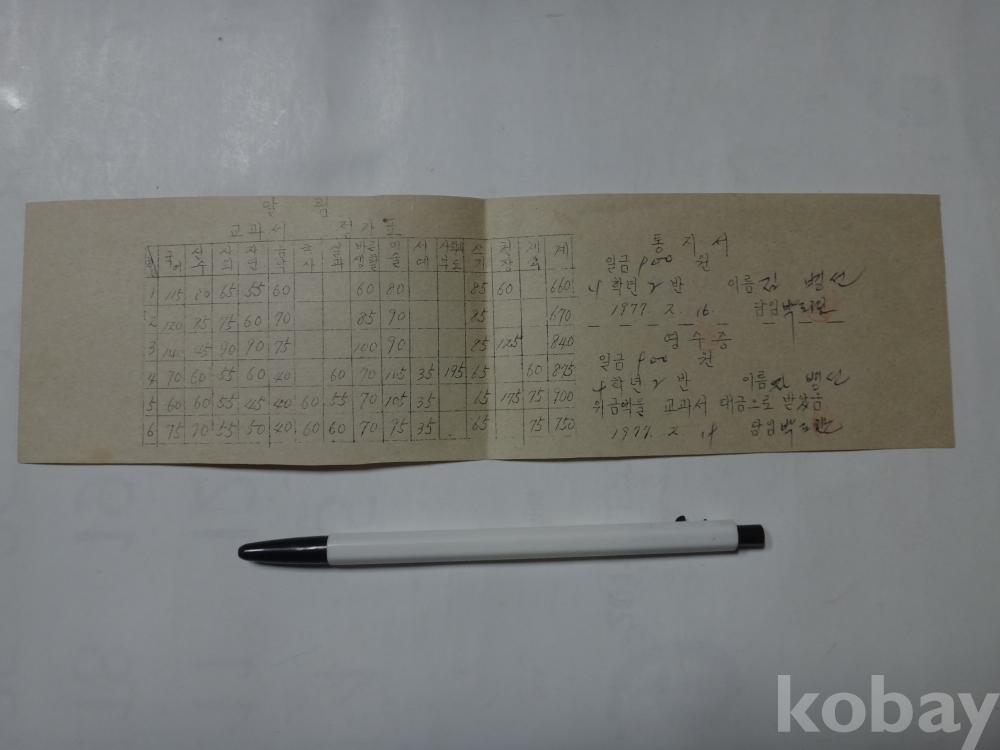 알림
교과서 전가표
국어 산수 사회 자연 음악 바른생활 미술 서예 쓰기 체육 계
1 115 80 65 55 60 60 80 85 60 660
2 120 85 75 60 70 85 90 85 670
3 90 90 75 100 90 85 125 840
4 70 60 55 60 40 60 70 105 35 195 65 60 875
5 60 60 55 45 40 60 55 70 105 35 65 175 75 900
6 75 70 55 50 40 60 60 70 95 35 65 75 750
통지서
일금 900 원
4 학년 2 반 이름 김 병선
1977. 2. 16. 담임
영수증
일금 900 원
4 학년 2 반 이름 김 병선
위금액을 교과서 대금으로 받았음
1977. 2. 담임
kobay